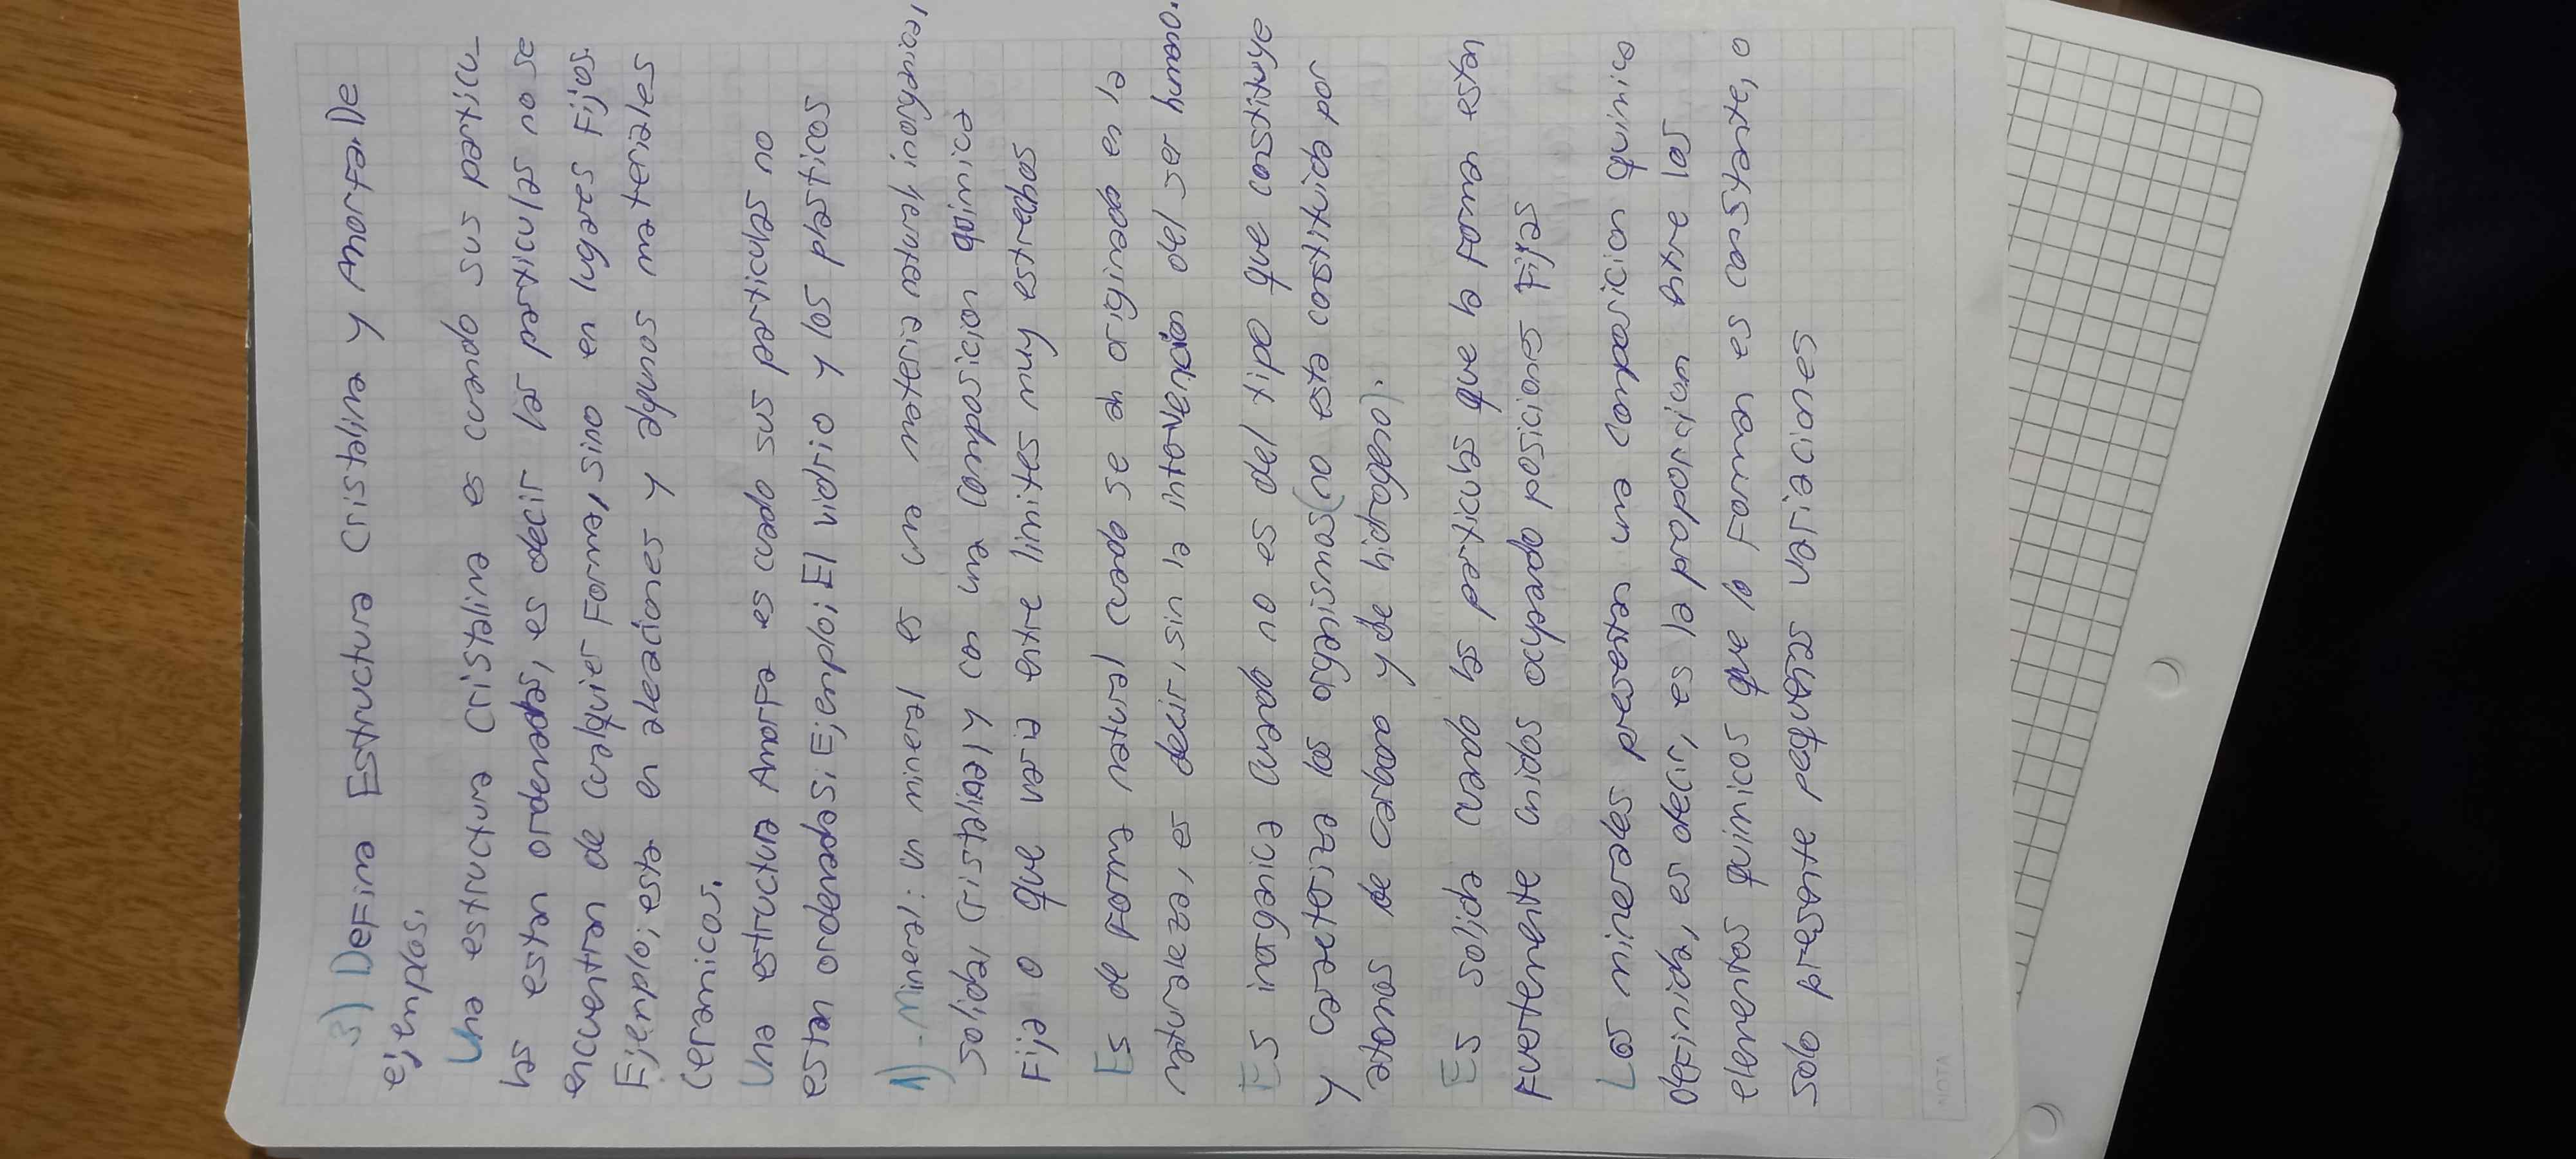 3) Defina Estructura Cristalina y Amorfa. De
ejemplos.
Una estructura cristalina es cuando sus particu_
las estan ordenadas, es decir las particulas no se
encuentran de cualquier Forma, sino en lugares Fijos.
Ejemplo; esta en aleaciones y algunos materiales
ceramicos.
Una estructura Amorfa es cuado sus particulas no
estan ordenadas; Ejemplo; El vidrio y los plasticos
1)-Mineral: un mineral es una materia natural, inorganica,
solida, cristalina, y con una composicion quimica
Fija o que varia entre limites muy estrechos
Es de Forma natural cuando se a originado en la
naturaleza, es decir, sin la intervención del ser humano.
Es inorganica cuando no es del tipo que constituye
y caracteriza los organismos (no esta constituida por
atomos de carbono y de hidrogeno).
Es solida cuando las particulas que la Forman estan
Fuertemente unidas ocupando posiciones Fijas
Los minerales presentan una composicion quimica
definida, es decir, es la proporcion entre los
elementos quimicos que lo Forman es constante, o
solo presente pequeñas variaciones
NOTA